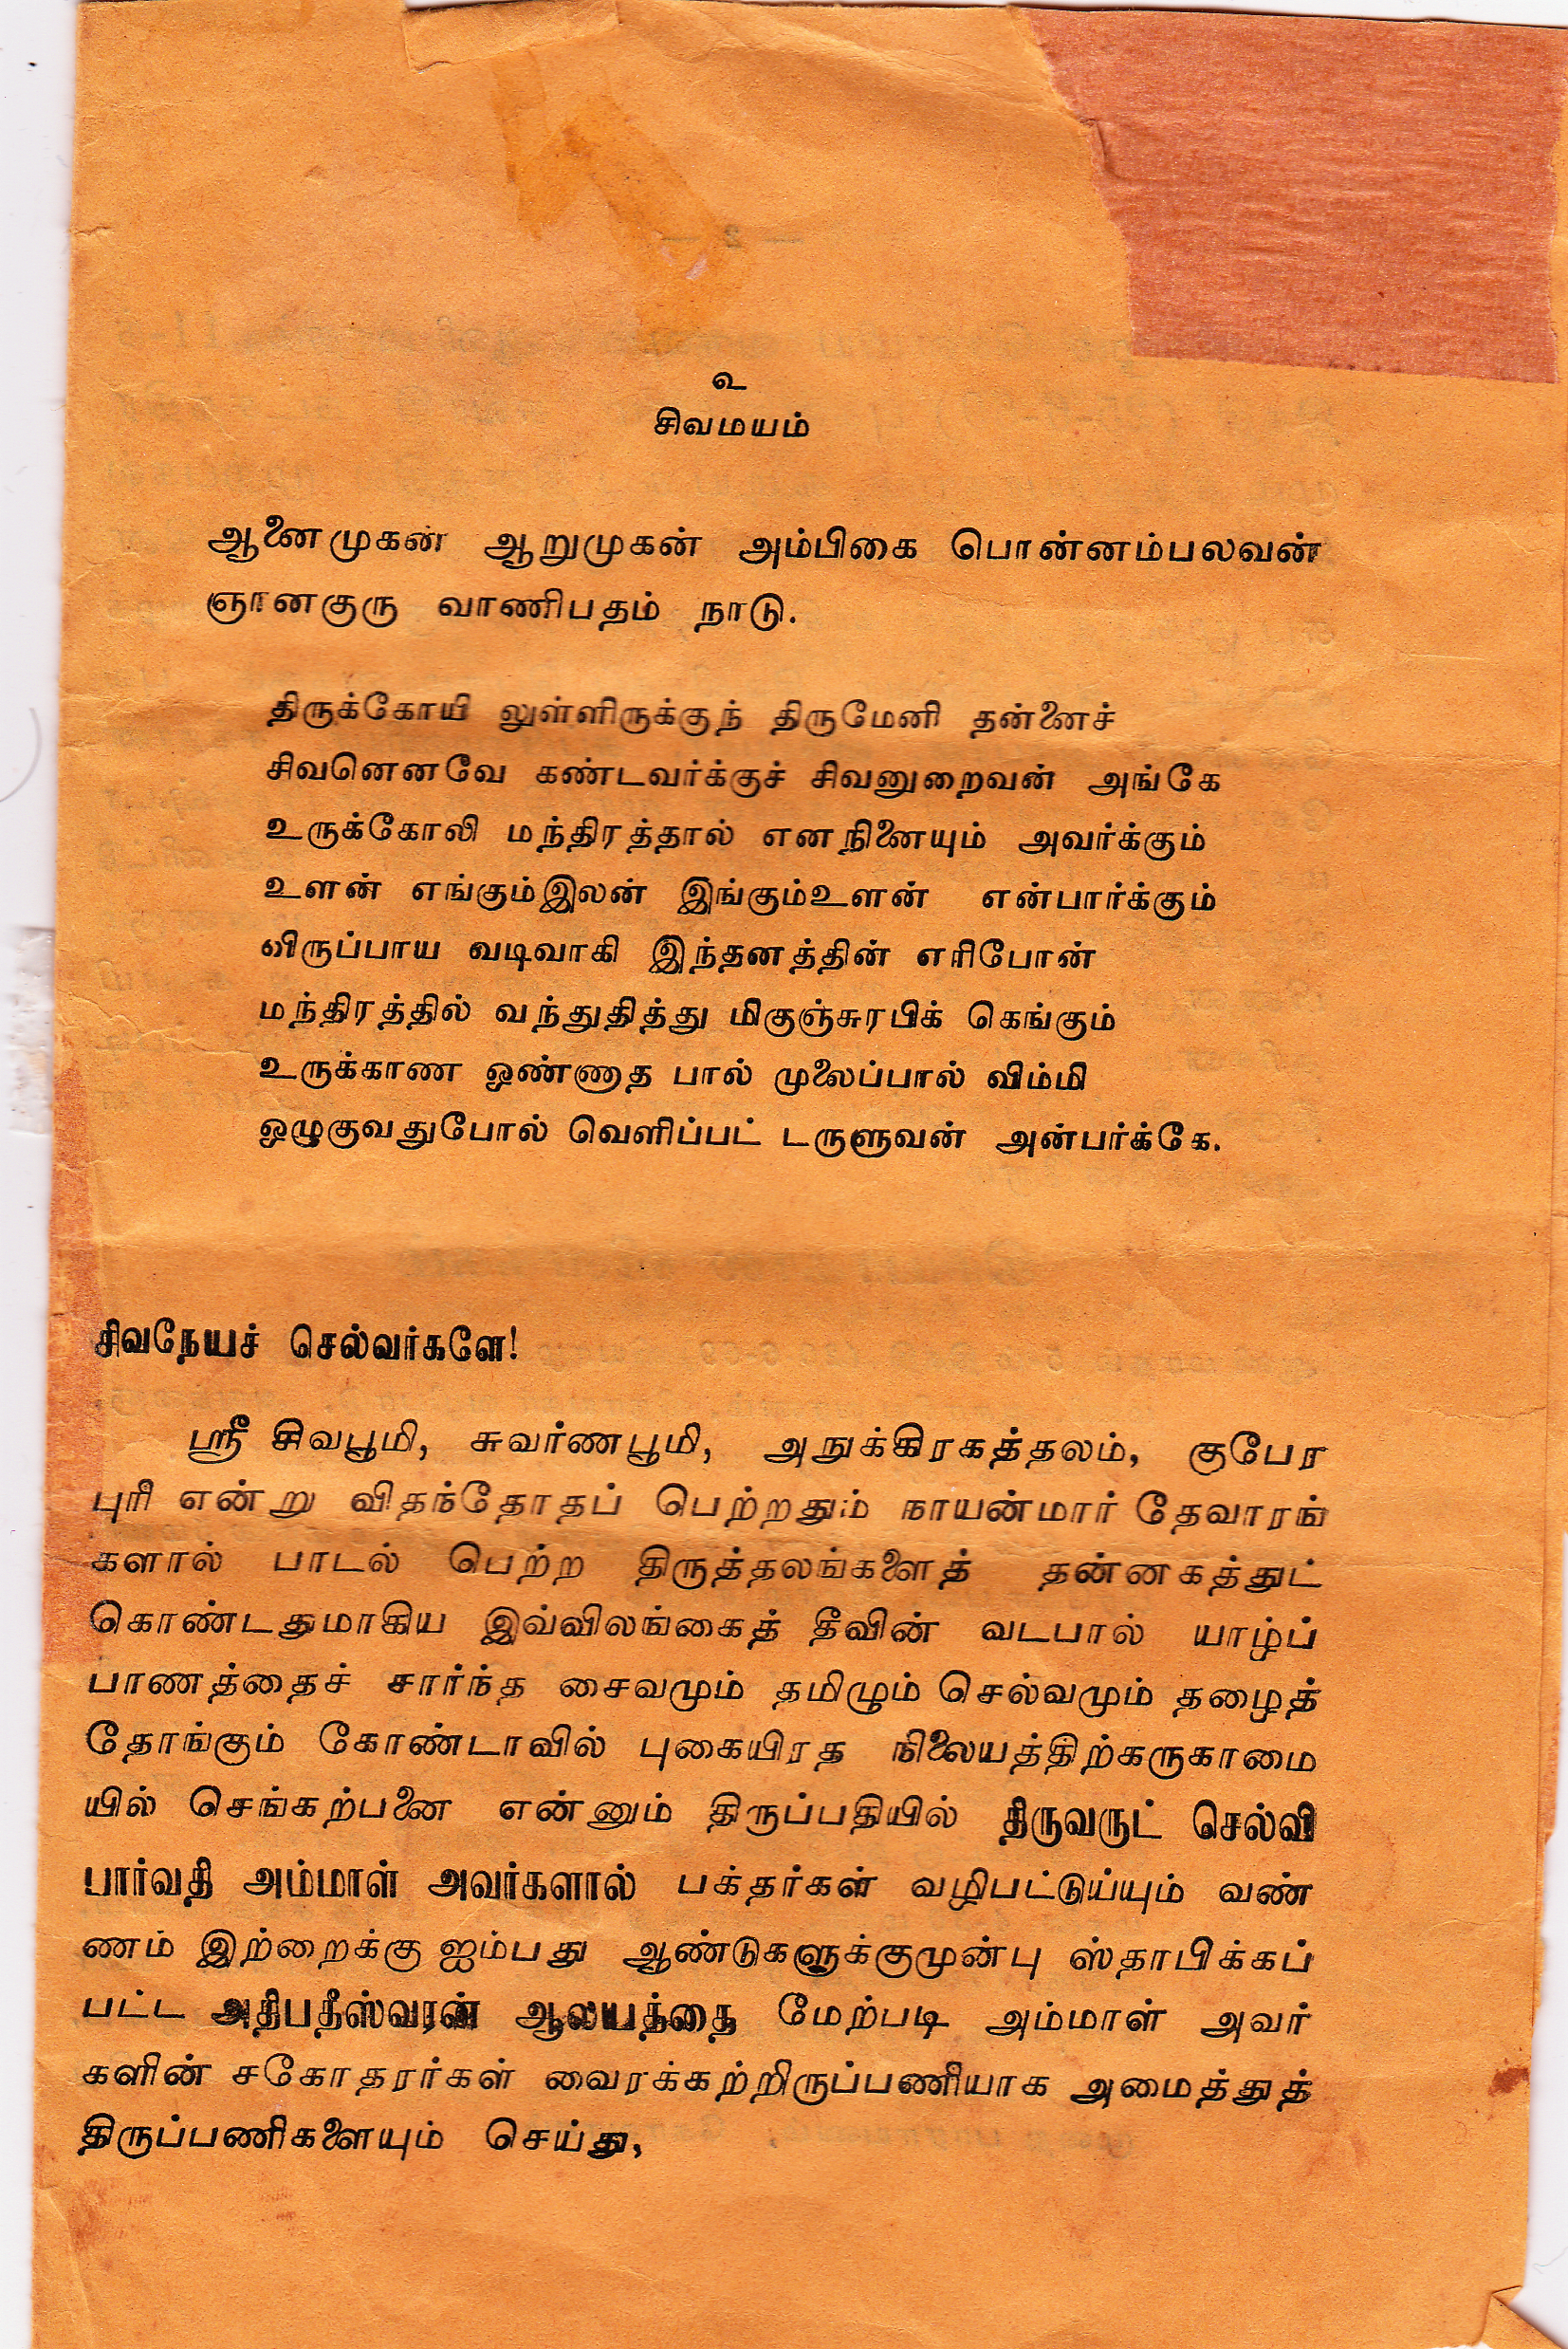 உ
சிவமயம்
ஆனைமுகன் ஆறுமுகன் அம்பிகை பொன்னம்பலவன்
ஞானகுரு வாணிபதம் நாடு.
திருக்கோயி லுள்ளிருக்குந் திருமேனி தன்னைச்
சிவனெனவே கண்டவர்க்குச் சிவனுறைவன் அங்கே
உருக்கோலி மந்திரத்தால் எனநினையும் அவர்க்கும்
உளன் எங்கும்இலன் இங்கும்உளன் என்பார்க்கும்
விருப்பாய வடிவாகி இந்தனத்தின் எரிபோன்
மந்திரத்தில் வந்துதித்து மிகுஞ்சுரபிக் கெங்கும்
உருக்காண ஒண்ணாத பால் முலைப்பால் விம்மி
ஒழுகுவதுபோல் வெளிப்பட் டருளுவன் அன்பர்க்கே.
சிவநேயச் செல்வர்களே!
ஸ்ரீ சிவபூமி, சுவர்ணபூமி, அநுக்கிரகத்தலம், குபேர
புரி என்று விதந்தோதப் பெற்றதும் நாயன்மார் தேவாரங்
களால் பாடல் பெற்ற திருத்தலங்களைத் தன்னகத்துட்
கொண்டதுமாகிய இவ்விலங்கைத் தீவின் வடபால் யாழ்ப்
பாணத்தைச் சார்ந்த சைவமும் தமிழும் செல்வமும் தழைத்
தோங்கும் கோண்டாவில் புகையிரத நிலையத்திற்கருகாமை
யில் செங்கற்பனை என்னும் திருப்பதியில் திருவருட் செல்வி
பார்வதி அம்மாள் அவர்களால் பக்தர்கள் வழிபட்டுய்யும் வண்
ணம் இற்றைக்கு ஐம்பது ஆண்டுகளுக்குமுன்பு ஸ்தாபிக்கப்
பட்ட அதிபதீஸ்வரன் ஆலயத்தை மேற்படி அம்மாள் அவர்
களின் சகோதரர்கள் வைரக்கற்றிருப்பணியாக அமைத்துத்
திருப்பணிகளையும் செய்து,